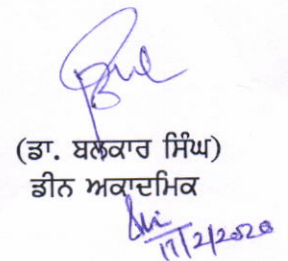 (ਡਾ. ਬਲਕਾਰ ਸਿੰਘ)
ਡੀਨ ਅਕਾਦਮਿਕ
17/2/2020